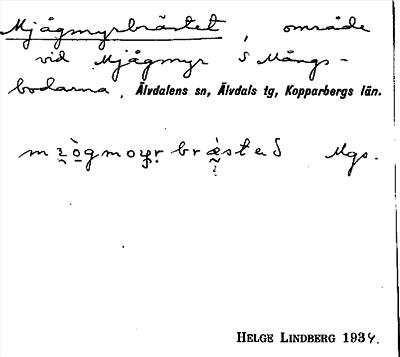 Mjågmyrbrästet, område
vid Mjågmyr S Mångs-
bodarna, Älvdalens sn, Älvdals tg, Kopparbergs län.
Mgs.
HELGE LINDBERG 1934.